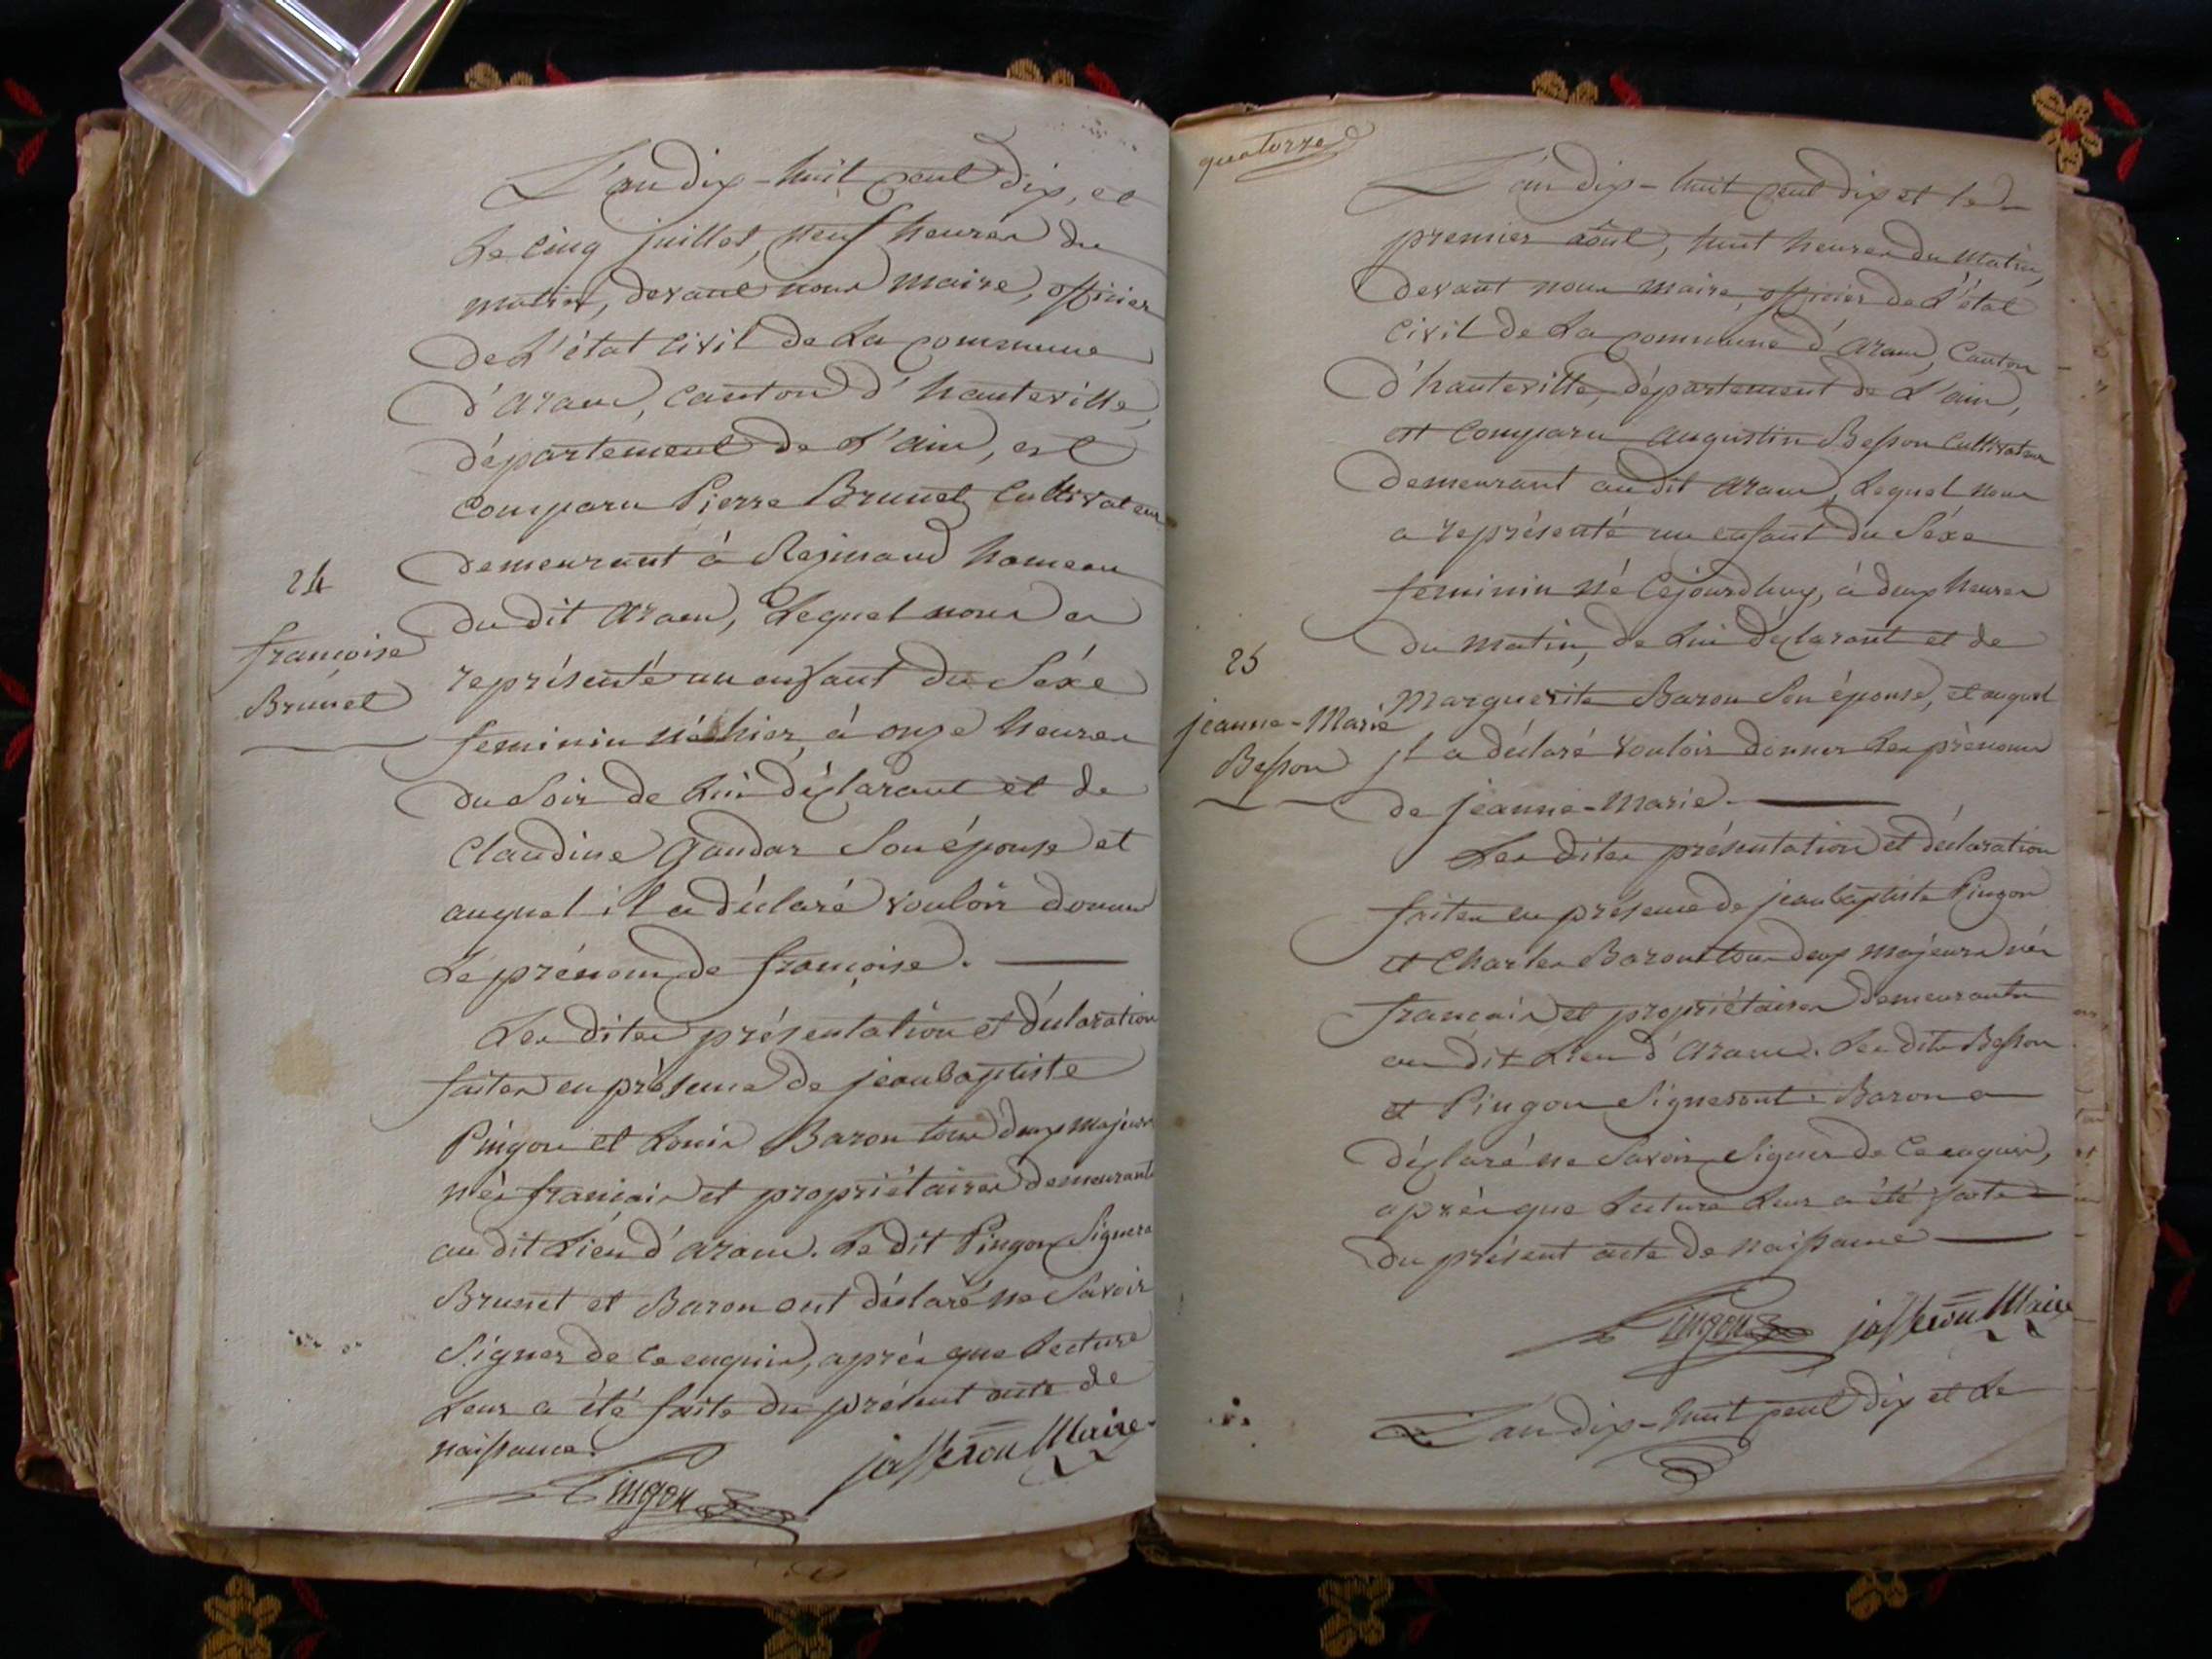 L'an dix-huit cent dix, et
Le cinq juillet, neuf heures du
matin, devant nous maire, officier
de L'état civil de La commune
d'aranc, canton d'hauteville,
département de L'ain, est
comparu Pierre Brunet Cultivateur
demeurant à Rejmand hameau
du dit aranc, Lequel nous a
24
françoise
Brunet
représenté un enfant du Séxe
feminin né hier, à onze heures
du Soir de Lui déclarant et de
Claudine Gaudar Son épouse et
auquel il a déclaré vouloir donner
Le prénom de françoise.
Les dites présentation et déclaration
faites en présence de jean baptiste
Pingon et Louis Baron tous deux majeurs
nés français et propriétaires demeurants
au dit Lieu d'aranc. Le dit Pingon Signera
Brunet et Baron ont déclaré ne Savoir
Signer de ce enquis, après que Lecture
Leur a été faite du présent acte de
naissance.
Pingon jasseron Maire
quatorze
L'an dix-huit cent dix et le
premier août, huit heures du matin,
devant nous maire, officier de L'état
civil de La commune d'aranc, Canton
d'hauteville, département de L'ain,
est comparu augustin Besson Cultivateur
demeurant au dit aranc, Lequel nous
a représenté un enfant du Séxe
féminin né Cejourdhuy, à deux heures
du matin, de Lui déclarant et de
25
jeanne-Marie
Besson
Marguerite Baron Son épouse, et auquel
jl a déclaré vouloir donner Les prénoms
de jeanne-Marie.
Les dites présentation et déclaration
faites en présence de jean baptiste Pingon
et Charles Baron tous deux majeurs nés
français et propriétaires demeurants
au dit Lieu d'aranc. Les dits Besson
et Pingon Signeront. Baron a
déclaré ne Savoir Signer de Ce enquis,
après que Lecture Leur a été faite
du présent acte de naissance
Pingon jasseron Maire
L'an dix-huit cent dix et Le